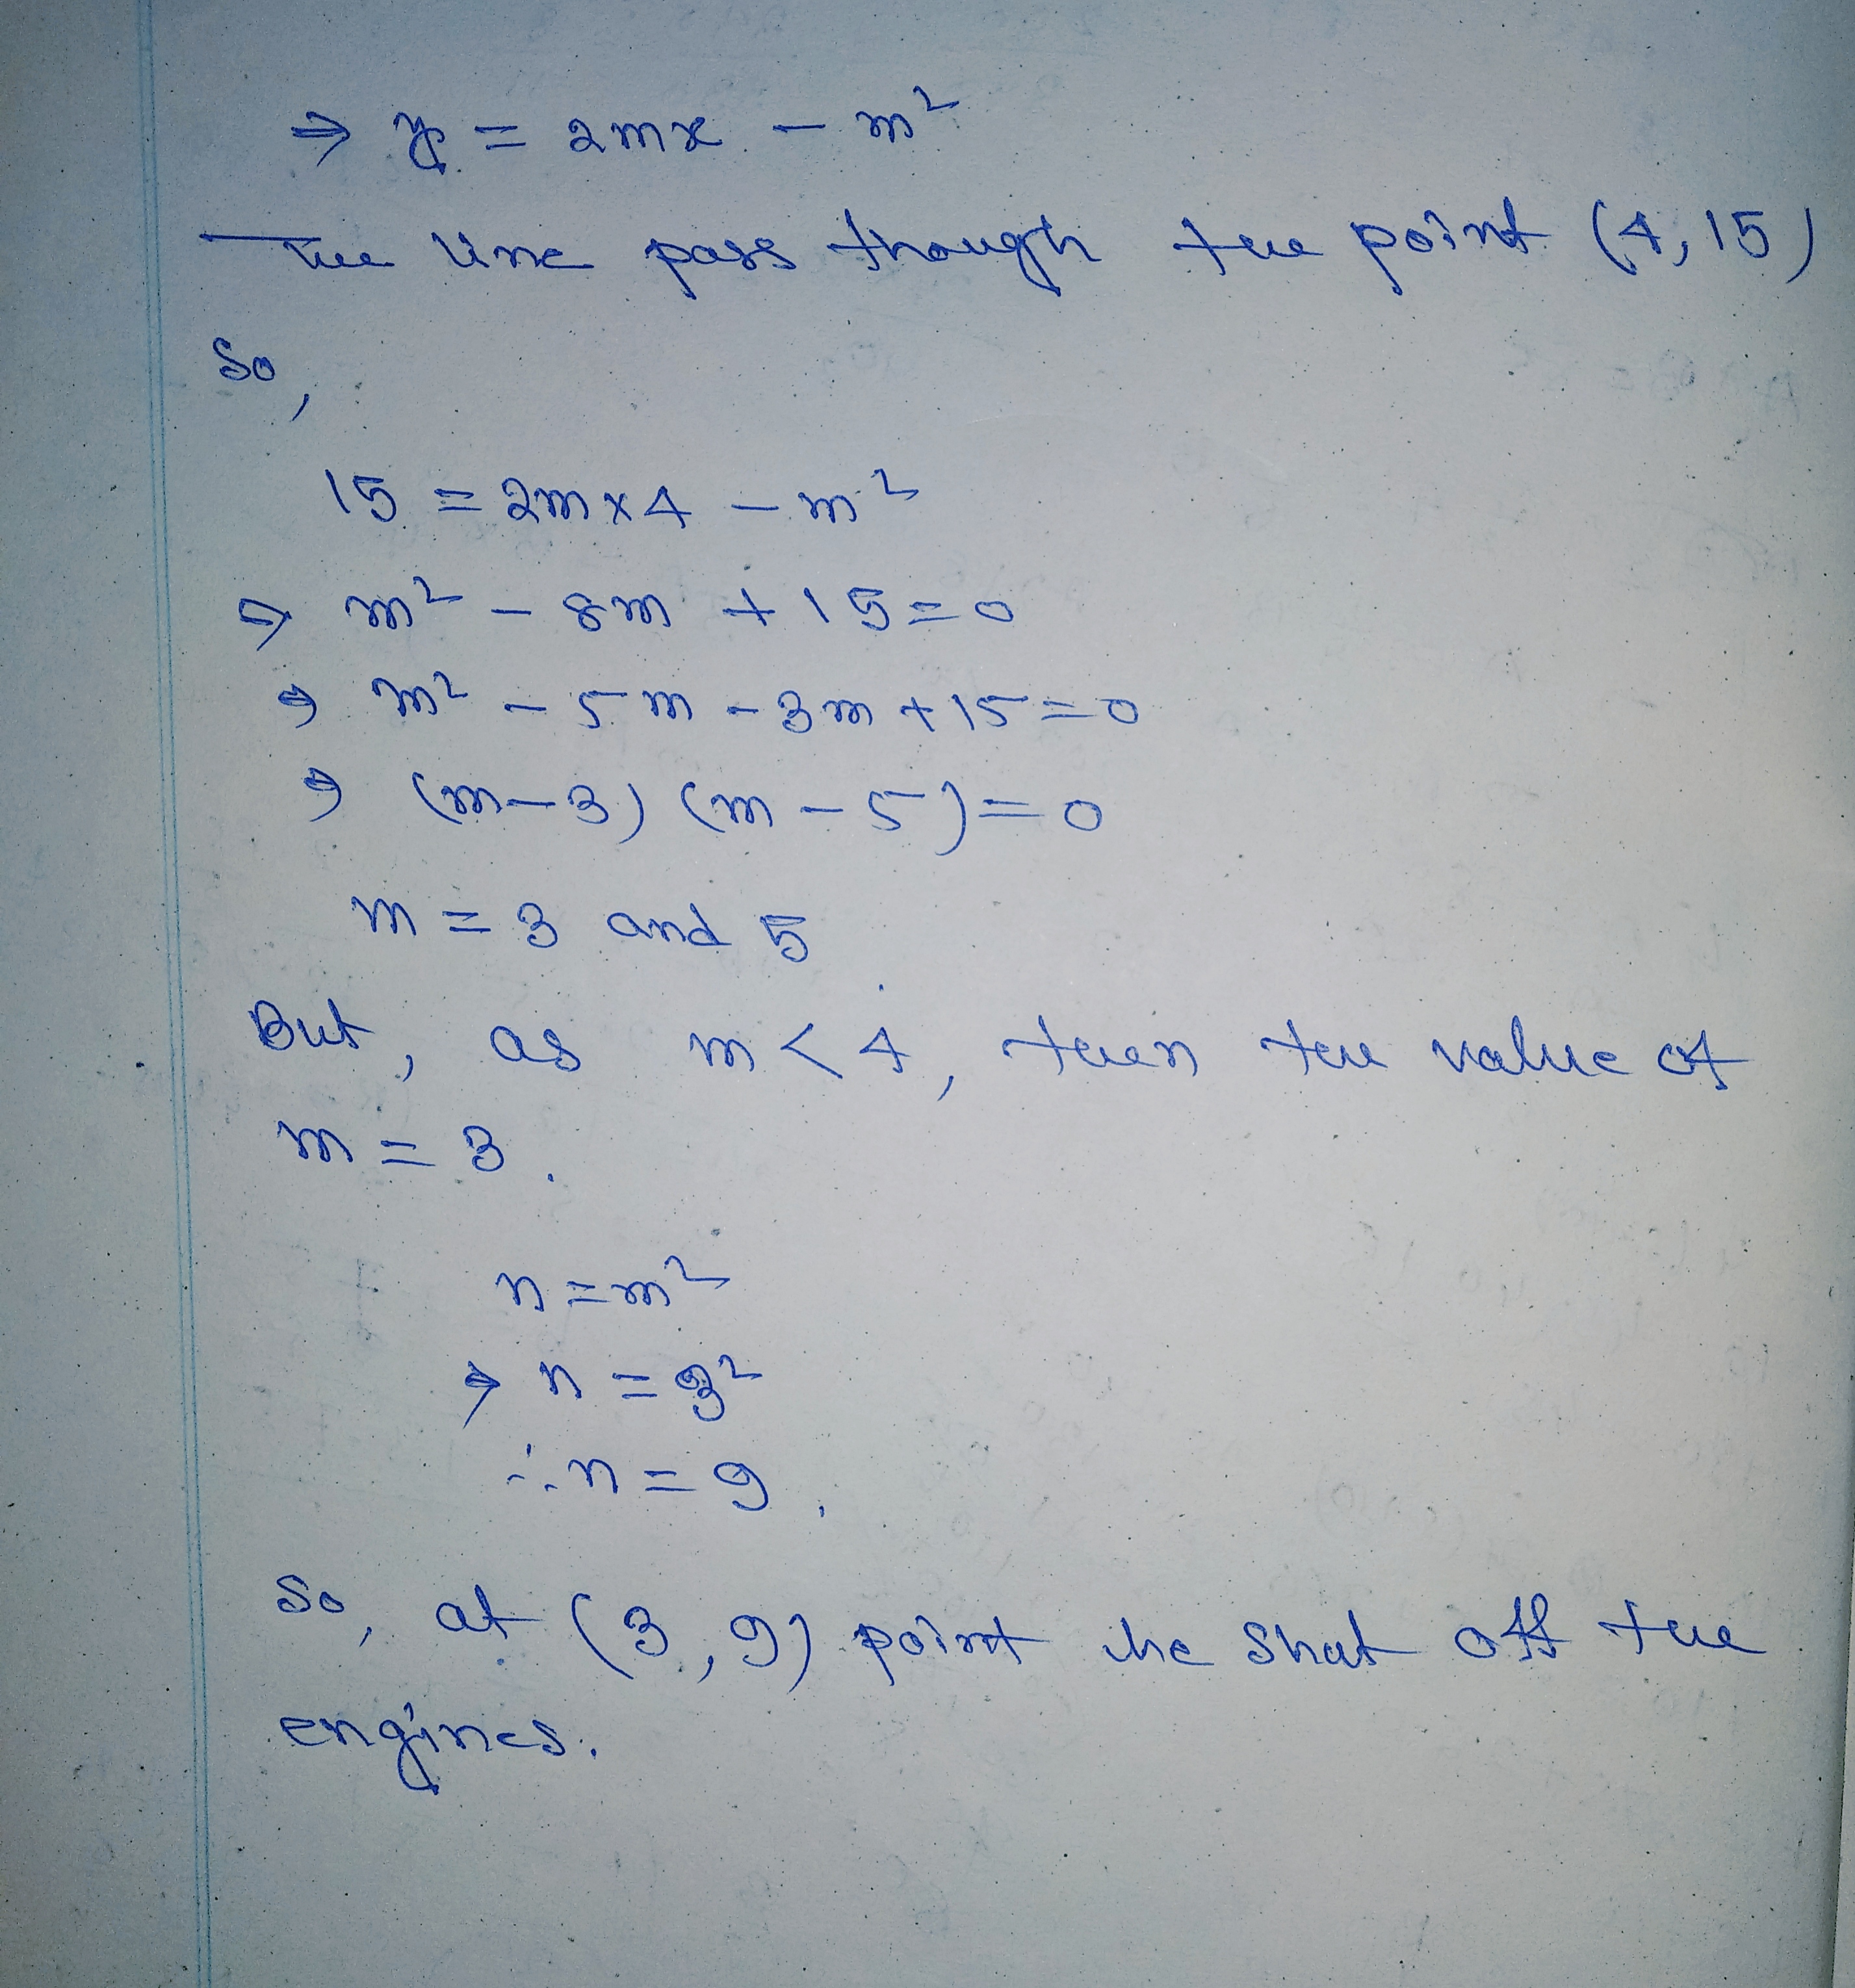 ⇒ y = 2mx - m²
The line pass though the point (4, 15)
So,
15 = 2m x 4 - m²
⇒ m² - 8m + 15 = 0
⇒ m² - 5m - 3m + 15 = 0
⇒ (m - 3) (m - 5) = 0
m = 3 and 5
But, as m < 4, then the value of
m = 3.
n = m²
⇒ n = 3²
∴ n = 9.
So, at (3, 9) point she shut off the
engines.